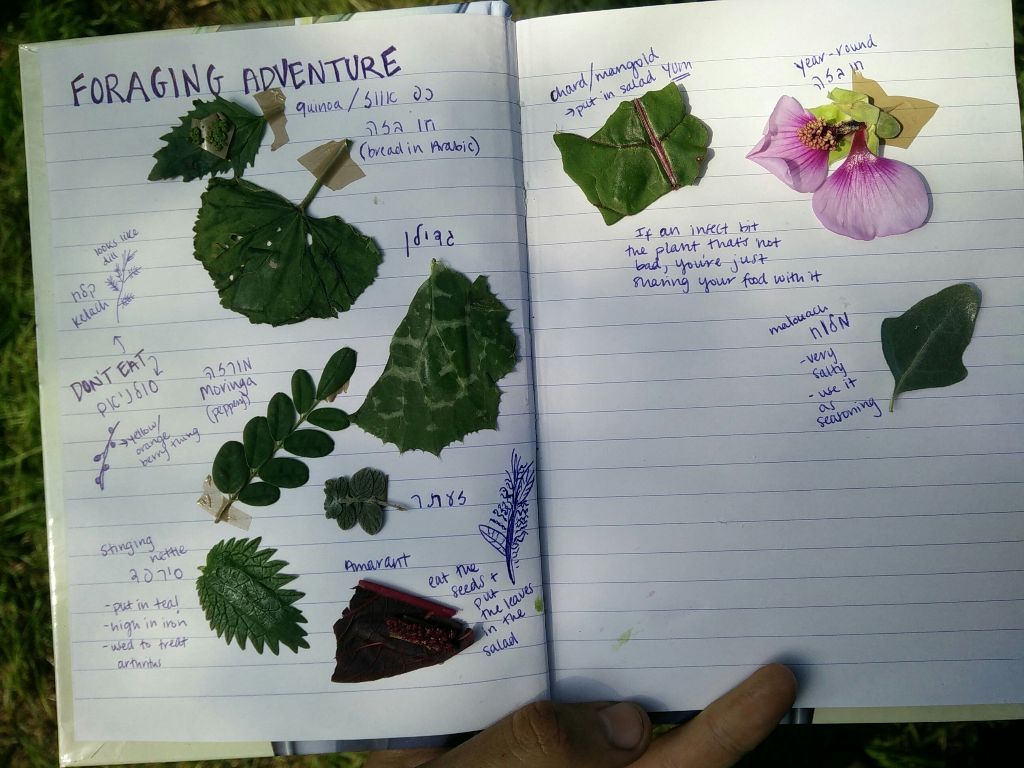 FORAGING ADVENTURE
quinoa / כף אווז
חובזה
(bread in Arabic)
גדילן
looks like
dill
קלח
Kelach
DON'T EAT
סולניאום
yellow/
orange
berry thing
מורינגה
Moringa
(peppery)
זעתר
Stinging
nettle
סירפד
-put in tea!
-high in iron
-used to treat
arthritus
Amarant
eat the
seeds +
put
the leaves
in the
salad
chard/mangold
→put in salad yum
year-round
חובזה
If an insect bit
the plant that's not
bad, you're just
sharing your food with it
malouach
מלוח
-very
salty
-use it
as
seasoning